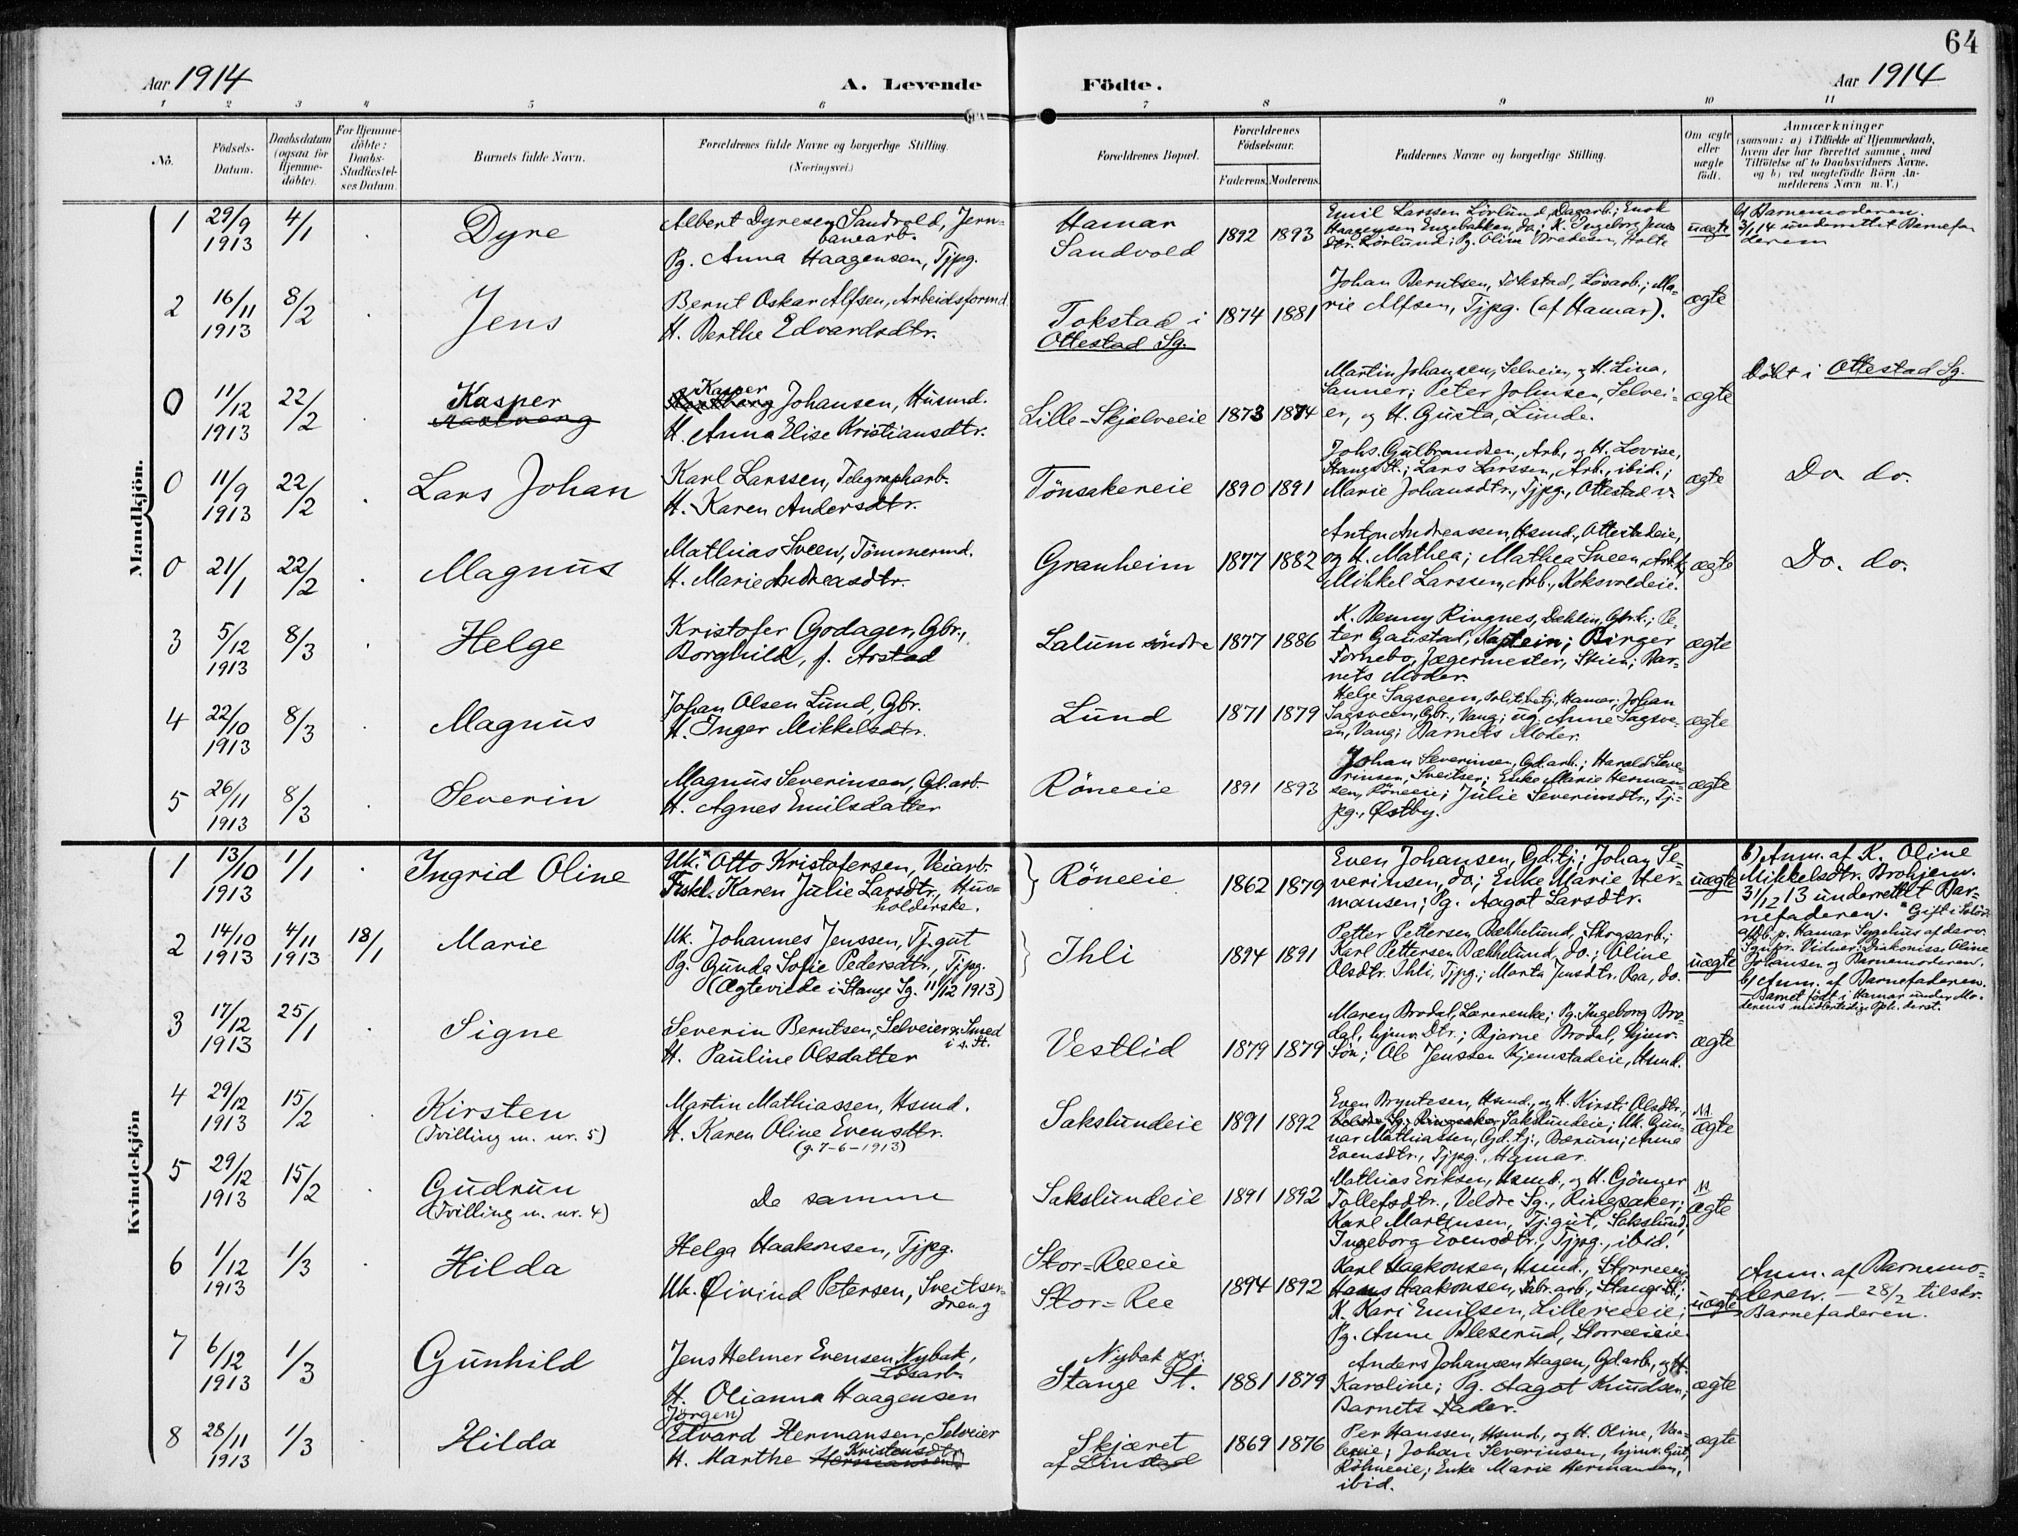 64
Aar 1914
A. Levende
Födte.
Aar 1914
1 2 3 4 5 6 7 8 9 10 11
No.
Födsels-
Datum.
Daabsdatum
(ogsaa for
Hjemme-
döbte).
For Hjemme-
döbte:
Daabs-
Stadfæstel-
ses Datum.
Barnets fulde Navn.
Forældrenes fulde Navne og borgerlige Stilling.
(Næringsvei.)
Forældrenes Bopæl.
Forældrenes
Födselsaar.
Faderens. Moderens.
Faddernes Navne og borgerlige Stilling.
Om ægte
eller
uægte
födt.
Anmærkninger
(saasom: a) i Tilfælde af Hjemmedaab,
hvem der har forrettet samme, med
Tilföielse af to Daabsvidners Navne.
og b) ved uægtefödte Börn An-
melderens Navn m. V.)
Mandkjön.
1
29/9
1913
4/1
Dyre
Albert Dyresen Sandvold, Jern-
banearb.
Pg. Anna Haagensen, Tjpg.
Hamar
Sandvold
1892 1893
Emil Larssen Lörlund, Dagarb.; Enok
Haagensen Engebakken, do.; K. Ingeborg Jens
dtr. Lörlund; Pg. Oline
uægte
b) Barnemoderen.
3/1 14 underrettet Barnefa
deren
2
16/11
1913
8/2
Jens
Bernt Oskar Alfsen, Arbeidsformd.
H. Berthe Edvardsdtr.
Tokstad i
Ottestad Sg.
1874 1881
Johan Berntsen, Tokstad, Lösarb.; Ma-
rie Alfsen, Tjpg. (af Hamar).
ægte
0
11/12
1913
22/2
Kasper
Kasper
Johansen, Husmd.
H. Anna Elise Kristiansdtr.
Lille-Skjelveeie
1873 1874
Martin Johansen, Selveier, og H. Lina,
Sanner; Peter Johnsen, Selvei-
er, og H. Gusta, Lunde.
ægte
Döbt i Ottestad Sg.
0
11/9
1913
22/2
Lars Johan
Karl Larssen, Telegrapharb.
H. Karen Andersdtr.
Tönsakereie
1890 1891
Johs. Gulbrandsen, Arb., og H. Lovise,
Stange St.; Lars Larssen, Arb., ibid.;
Marie Johansdtr., Tjpg., Ottestad v.
ægte
Do. do.
0
21/1
22/2
Magnus
Mathias Sveen, Tömmermd.
H. Marie Andreasdtr.
Granheim
1877 1882
Anton Andreassen, Husmd.,
og H. Mathea; Mathea Sveen,
Mikkel Larssen, Arb., Koksvoldeie.
ægte
Do. do.
3
5/12
1913
8/3
Helge
Kristofer Godager, Gbr.,
Borghild, f. Arstad
Lalum söndre
1877 1886
K. Benny Ringnes, Dehlin, Gbrk.; Pe-
ter Gaustad, Kaptein; Birger
Fornebo, Jægermester, Skien; Bar-
nets Moder.
ægte
4
22/10
1913
8/3
Magnus
Johan Olsen Lund, Gbr.
H. Inger Mikkelsdtr.
Lund
1871 1879
Helge Sagsveen, Politibetj., Hamar; Johan
Sagsveen, Gbr., Vang; ug. Anne Sagsve-
en, Vang; Barnets Moder.
ægte
5
26/11
1913
8/3
Severin
Magnus Severinsen, Gd.arb.
H. Agnes Emilsdatter
Röneeie
1891 1893
Johan Severinsen, Gd.arb.; Harald Seve-
rinsen, Sveitser; Enke Marie Herman-
sen, Röneeie; Julie Severinsdtr., Tj.-
pg., Østby.
ægte
Kvindekjön
1
13/10
1913
1/1
Ingrid Oline
Uk.* Otto Kristofersen, Veiarb.
Fraskl. Karen Julie Larsdtr., Hus-
holderske.
Röneeie
1862 1879
Even Johansen, Gd.tj.; Johan Se-
verinsen, do.; Enke Marie Her-
mansen; Pg. Aagot Larsdtr.
uægte
b) Anm. af K. Oline
Mikkelsdtr. Brohjem.
31/12 13 underrettet Bar-
nefaderen. *Gift i Solör.
2
14/10
1913
4/11
1913
18/1
Marie
Uk. Johannes Jenssen, Tj.gut
Pg. Gunda Sofie Pedersdtr., Tjpg.
(Ægteviede i Stange Sg. 11/12 1913)
Ihli
1894 1891
Petter Pettersen Bækkelund, Skogsarb.;
Karl Pettersen Bækkelund, do.; Oline
Olsdtr. Ihli, Tjpg.; Marta Jensdtr. Raa, do.
uægte
a) Db. p. Hamar Sygehus af derv.
Sgnpr. Vidner: Diakonisse Oline
Johansen og Barnemoderen.
b) Anm. af Barnefaderen.
— Barnet födt i Hamar under Mo-
derens midlertidige Oph. derst.
3
17/12
1913
25/1
Signe
Severin Berntsen, Selveier & Smed
i s. St.
H. Pauline Olsdatter
Vestlid
1879 1879
Maren Brodal, Lærerenke; Pg. Ingeborg Bro-
dal, hjmv. Dtr.; Bjarne Brodal, hjmv.
Sön; Ole Jenssen Hjemstadeie, Husmd.
ægte
4
29/12
1913
15/2
Kirsten
(Tvilling m. nr. 5)
Martin Mathiassen, Husmd.
H. Karen Oline Evensdtr.
(g. 7-6-1913)
Sakslundeie
1891 1892
Even Bryntesen, Husmd., og H. Kirsti Olsdtr.,
Sakslundeie; Uk. Gun-
nar Mathiassen, Gd.tj., Bærum; Anne
Evensdtr., Tjpg., Hamar.
ægte
5
29/12
1913
15/2
Gudrun
(Tvilling m. nr. 4)
De samme
Sakslundeie
1891 1892
Mathias Eriksen, Husmd., og H. Gjönner
Tollefsdtr., Veldre Sg., Ringsaker;
Karl Martinsen, Tj.gut, Sakslund;
Ingeborg Evensdtr., Tjpg., ibid.
ægte
6
1/12
1913
1/3
Hilda
Helga Haakonsen, Tjpg.
Uk. Öivind Petersen, Sveitser-
dreng
Stor-Reeeie
Stor-Ree
1894 1892
Karl Haakonsen, Husmd., Storreeeie;
Hans Haakonsen, Fabr.arb., Stange St.;
K. Kari Emilsen, Lillereeeie;
Pg. Anne Bleserud, Storreeeie.
uægte
Anm. af Barnemo-
deren. — 28/2 tilskr.
Barnefaderen.
7
6/12
1913
1/3
Gunhild
Jens Helmer Evensen Nybak,
Lösarb.
H. Olianna Haagensen
Nybak pr.
Stange St.
1881 1879
Anders Johansen Hagen, Gd.arb., og H.
Karoline; Pg. Aagot Knudsen;
Barnets Fader.
ægte
8
28/11
1913
1/3
Hilda
(Jörgen)
Edvard Hermansen, Selveier
H. Marthe Kristensdtr.
Skjæret
af Linstad
1869 1876
Per Hanssen, Husmd., og H. Oline,
Johan Severinsen, hjmv. Gut,
Röhneeie; Enke Marie Hermansen,
ibid.
ægte